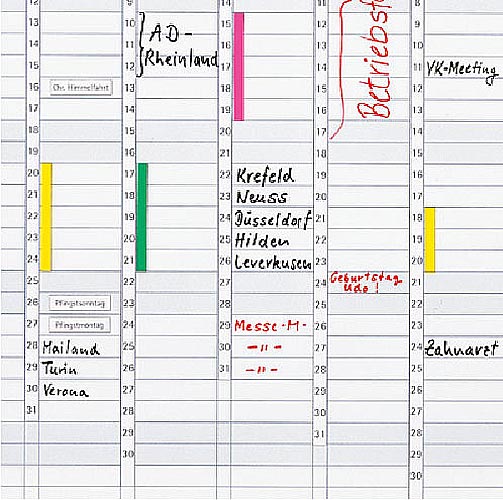 13
14
15
16 Chr. Himmelfahrt
17
18
19
20
21
22
23
24
25
26 Pfingstsonntag
27 Pfingstmontag
28 Mailand
29 Turin
30 Verona
31
9
10 AD-
11 Rheinland
12
13
14
15
16
17
18
19
20
21
22
23
24
25
26
27
28
29
30
14
15
16
17
18
19
20
21
22 Krefeld
23 Neuss
24 Düsseldorf
25 Hilden
26 Leverkusen
27
28
29 Messe-M-
30 -"-
31 -"-
11
12
13
14
15
16
17
Betriebsf
18
19
20
21
22
23
24 Geburtstag
Udo!
25
26
27
28
29
30
31
8
9
10
11 VK-Meeting
12
13
14
15
16
17
18
19
20
21
22
23
24 Zahnarzt
25
26
27
28
29
30